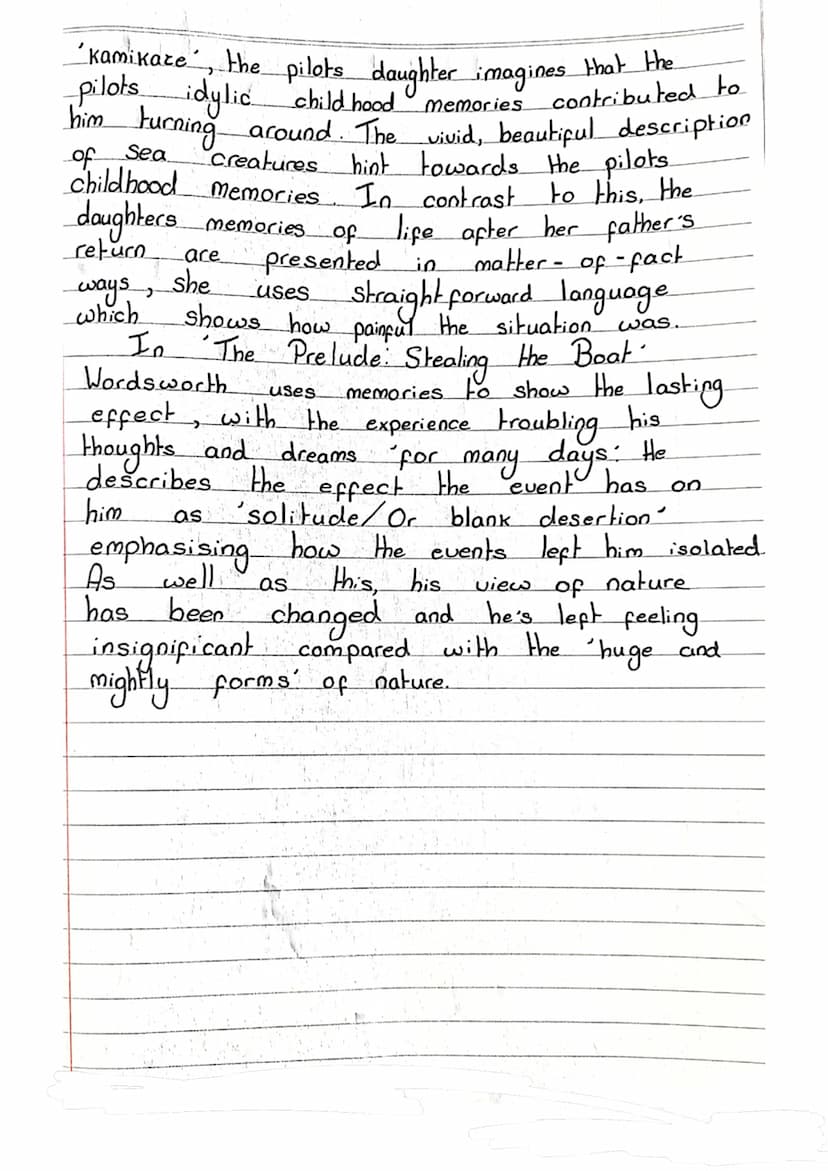 'Kamikaze', the pilots daughter imagines that the
pilots idylic childhood memories contributed to
him turning around. The vivid, beautiful description
of sea creatures hint towards the pilots
childhood memories. In contrast to this, the
daughters memories of life after her father's
return are presented in matter-of-fact
ways, she uses straightforward language
which shows how painful the situation was.
In 'The Prelude: Stealing the Boat'
Wordsworth uses memories to show the lasting
effect, with the experience troubling his
thoughts and dreams 'for many days'. He
describes the effect the event has on
him as 'solitude/Or blank desertion'
emphasising how the events left him isolated.
As well as this, his view of nature
has been changed and he's left feeling
insignificant compared with the 'huge and
mightly forms' of nature.